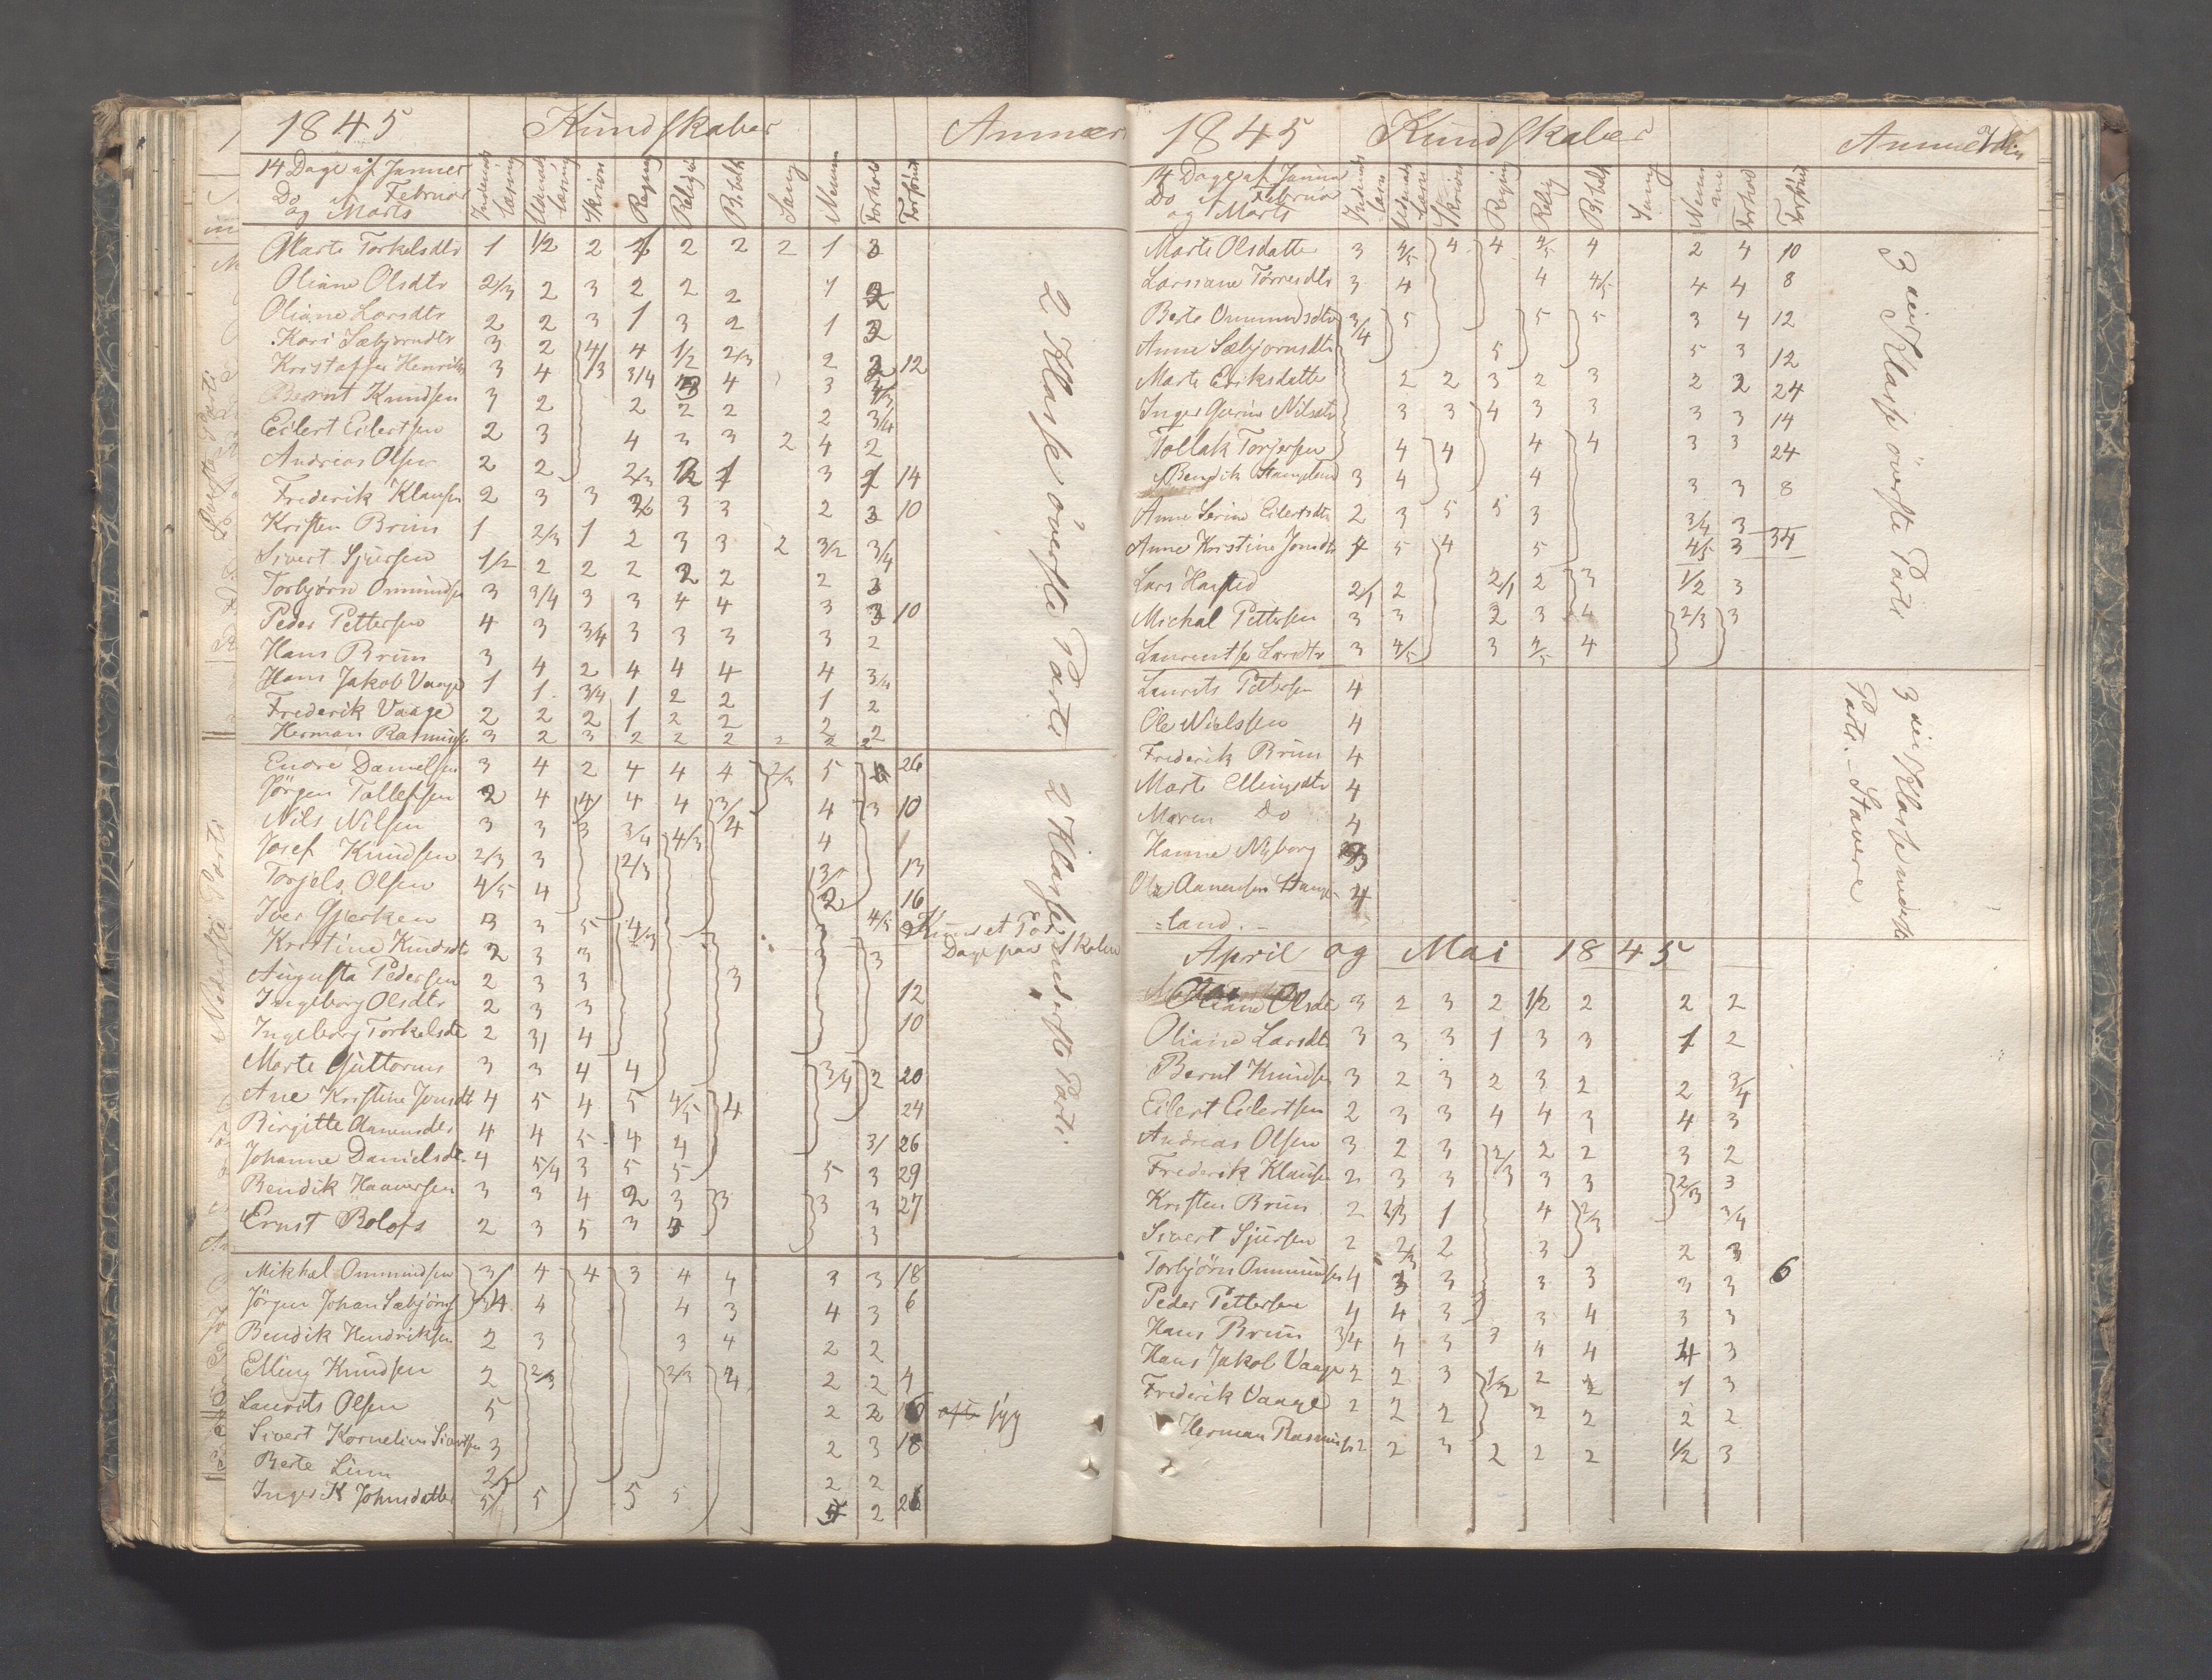 1845 Kundskaber Anmær
14 Dage af Januar
Do af Februar
og Marts
Indenads Læsning Udenads Læsning Skrivn Regng Religion B. hist. Sang Nemm Forhold Forsømt
Marte Torkelsdtr 1 1/2 2 2 2 2 1 3
Oliane Olsdtr 2/3 2 3 2 2 2 1
Oliane Larsdtr 2 2 3 1 3 2 1
Kari Sæbjørndtr 3 2 4/3 4 1/2 2/3 2
Kristoffer Henriks 3 4 3/4 4 3 12
Bernt Knudsen 3 2 2 2 2 2 3/4
Eilert Eilertsen 2 3 4 3 3 2 4 2
Andreas Olsen 2 2 2/3 3 14
Frederik Klausen 2 3 3 3 3 2 3 10
Kristen Brun 1 2/3 1 2 3 3 2 3/2 3/4
Sivert Sjursen 1/2 2 2 2 2 2 2 3
Torbjørn Ommundsen 3 3/4 3 3 4 4 3 3 10
Peder Pettersen 4 3 3/4 3 3 3 3 2
Hans Brun 3 4 2 4 4 4 4 3/4
Hans Jakob Vaage 1 1 3/4 1 2 2 1 2
Frederik Vaage 2 2 2 1 2 2 2 2
Herman Rasmuss 3 2 3 2 2 2 2 2 2
2 Klasse överste Parti
Endre Danielsen 3 4 2 4 4 4 2/3 5 26
Jörgen Tollefsen 2 4 4/3 4 4 3/4 4 3 10
Nils Nilsen 3 3 3/4 4/3 4
Josef Knudsen 2/3 3 2/3 13
Torjels Olsen 4/5 4 2 16
Iver Gjerken 3 3 5 4/3 3 4/5 Kun et Par
Kristine Knudsdtr 2 3 3 3 3 Dage paa Skolen
Augusta Pedersen 2 3 3 3
Ingeborg Olsdtr 2 3 3 12
Ingeborg Torkelsdtr 2 3/ 4 10
Marte Guttorms 3 3 4 4 3/4 2 20
Ane Kristine Jonsdtr 4 5 4 5 4/5 4 24
Birgitte Aanensdtr 4 4 5 4 4 3/ 26
Johanne Danielsdtr 4 5/4 3 5 5 5 3 29
Bendik Haaversen 3 3 4 2 3 3 3 3 27
Ernst Rolofs 2 3 5 3 3
2 Klasse nederste Parti
Mikhal Ommundsen 3/ 4 4 3 4 4 3 3 18
Jörgen Johan Sæbjörns 4 4 3 4 3 6
Bendik Hendriksen 2 3 3 4 2 2
Elling Knudsen 2 2/3 2/3 4 2 2 4
Laurits Olsen 5 2 2 ofte syg
Sivert Kornelius Sivertsen 3 2 3 18
Berte Linn 2/3 2 2
Inger K Johnsdatter 5/ 5 5 5 2 26
1845 Kundskaber Anmærkn
14 Dage af Januar
Do af Februar
og Marts
Indenads Læsn Udenads Læsn Skrivn Regng Relig B. hist Sang Nemme Forhold Forsømt
Marte Olsdatter 3 4/5 4 4 4/5 4 2 4 10
Larssane Torresdtr 3 4 4 4/5 4 4 8
Berte Ommundsdtr 3/4 5 5 5 3 4 12
Anne Sæbjornsdtr 5 5 3 12
Marte Eriksdatter 2 2 3 2 3 2 2 24
Inger Gurine Nilsdtr 3 3 4 3 3 3 3 14
Tollak Torjersen 4 4 4 4 3 3 24
Bendik Stangeland 3 4 4 3 3 8
Anne Serine Eilertsdtr 2 3 5 5 3 3/4 3
Anne Kristine Jonsdtr 4 5 4 5 4/5 3 34
Lars Hansted 2/1 2 2/1 2 3 1/2 3
Michal Pettersen 3 3 2 3 4 2/3 3
Laurentse Larsdtr 3 4/5 3 4/5 4
3die Klasse överste Parti
Laurits Pettersen 4
Ole Nielssen 4
Frederik Brun 4
Marte Ellingsdtr 4
Maren Do 4
Hanne Nyborg
Ole Aanensen Stange 4
=land.-
3die Klasse nederste
Parti. - Stavere
April og Mai 1845
Oliane Olsdtr 3 2 3 2 1/2 2 2 2
Oliane Larsdtr 3 3 3 1 3 3 1 2
Bernt Knudsen 3 2 3 2 3 2 2 3/4
Eilert Eilertsen 2 3 3 4 4 3 4 3
Andreas Olsen 3 2 3 2/3 2 2 3 2
Frederik Klausen 2 3 3 3 3 2/3 3
Kristen Brun 2 2/3 1 4 2/3 3/4
Sivert Sjursen 2 2/3 2 3 2 3
Torbjörn Ommundsen 4 3 3 3 3 3 3 6
Peder Pettersen 4 4 3 3 4 3 3
Hans Brun 3/4 4 3 3 4 4 4 3
Hans Jakob Vaage 2 2 3 1/2 2 2 1 3
Frederik Vaage 2 2 2 2 2 2 2
Herman Rasmuss 2 2 3 2 2 2 1/2 3